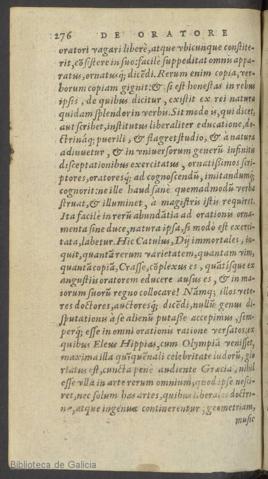 276 DE ORATORE
oratori vagari liberè, atque vbicunque constite-
rit, cōsistere in suo: facilè suppeditat omnis appa-
ratus, ornatusq́; dicēdi. Rerum enim copia, ver-
borum copiam gignit: & si est honestas in rebus
ipsis, de quibus dicitur, existit ex rei natura
quidam splendor in verbis. Sit modò is, qui dicet,
aut scribet, institutus liberaliter educatione, do-
ctrināq; puerili, & flagret studio, & à natura
adiuuetur, & in vniuersorum generū infinitis
disceptationibus exercitatus, ornatissimos scri-
ptores, oratoresq́; ad cognoscendū, imitandumq́;
cognorit: ne ille haud sanè quemadmodū verba
struat, & illuminet, à magistris istis requiret.
Ita facilè in rerū abundātia ad orationis orna-
menta sine duce, natura ipsa, si modò est exerci-
tata, labetur. Hic Catulus, Dij immortales, in-
quit, quantā rerum varietatem, quantam vim,
quantā copiā, Crasse, cōplexus es, quātisque ex
angustiis oratorem educere ausus es, & in ma-
iorum suorū regno collocare! Nāmq́; illos vete-
res doctores, auctoresq́; dicēdi, nullū genus di-
sputationis à se alienū putasse accepimus, sem-
perq́; esse in omni orationis ratione versatos: ex
quibus Eleus Hippias, cum Olympiā venisset,
maxima illa quīquēnali celebritate ludorū, glo-
riatus est, cuncta penè audiente Græcia, nihil
esse vlla in arte rerum omnium, quod ipse nesci-
ret, nec solùm has artes, quibus liberales doctri-
næ, atque ingenuæ continerentur, geometriam,
music
Biblioteca de Galicia